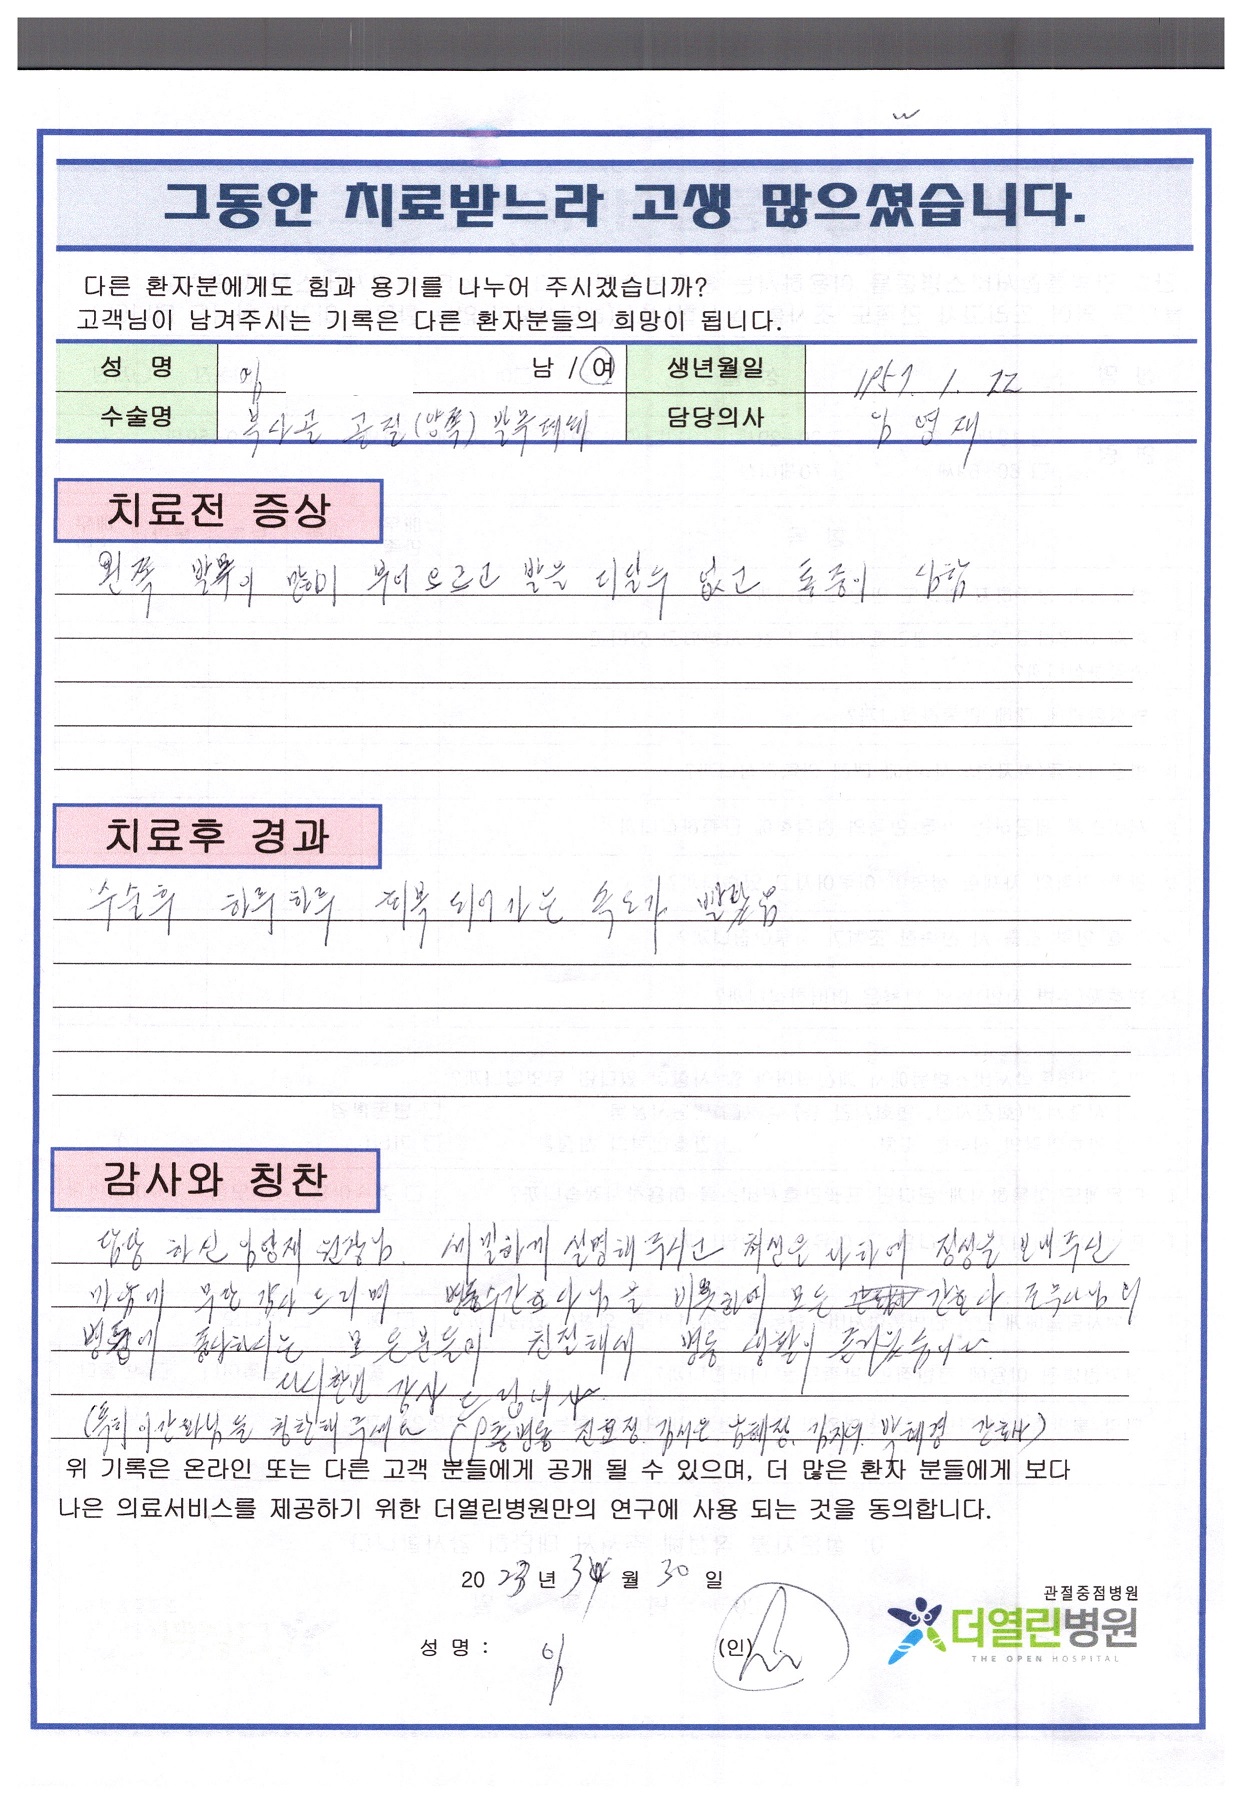 그동안 치료받느라 고생 많으셨습니다.
다른 환자분에게도 힘과 용기를 나누어 주시겠습니까?
고객님이 남겨주시는 기록은 다른 환자분들의 희망이 됩니다.
성 명 임 남 / 여 생년월일 1957. 1. 22
수술명 복사골 골절(양쪽) 발목 담당의사 임영재
치료전 증상
왼쪽 발목이 많이 부어오르고 발을 디딜수 없고 통증이 심함
치료후 경과
수술후 하루하루 회복 되어가는 속도가 빨랐음
감사와 칭찬
담당 하신 임영재 원장님. 세밀하게 설명해주시고 최선을 다하여 정성을 보내주신
마음에 무한 감사 드리며 병동수간호사님을 비롯한 모든 간호사 조무사님의
병동에 종사하시는 모든분들이 친절해서 병동 생활이 즐거웠습니다
다시한번 감사 드립니다
(특히 이간호사님을 칭찬해 주세요 병동 진효정. 김서은. 남혜정. 박혜경 간호사)
위 기록은 온라인 또는 다른 고객 분들에게 공개 될 수 있으며, 더 많은 환자 분들에게 보다
나은 의료서비스를 제공하기 위한 더열린병원만의 연구에 사용 되는 것을 동의합니다.
20 23 년 월 30 일
관절중점병원
더열린병원
THE OPEN HOSPITAL
성 명 : 임 (인)